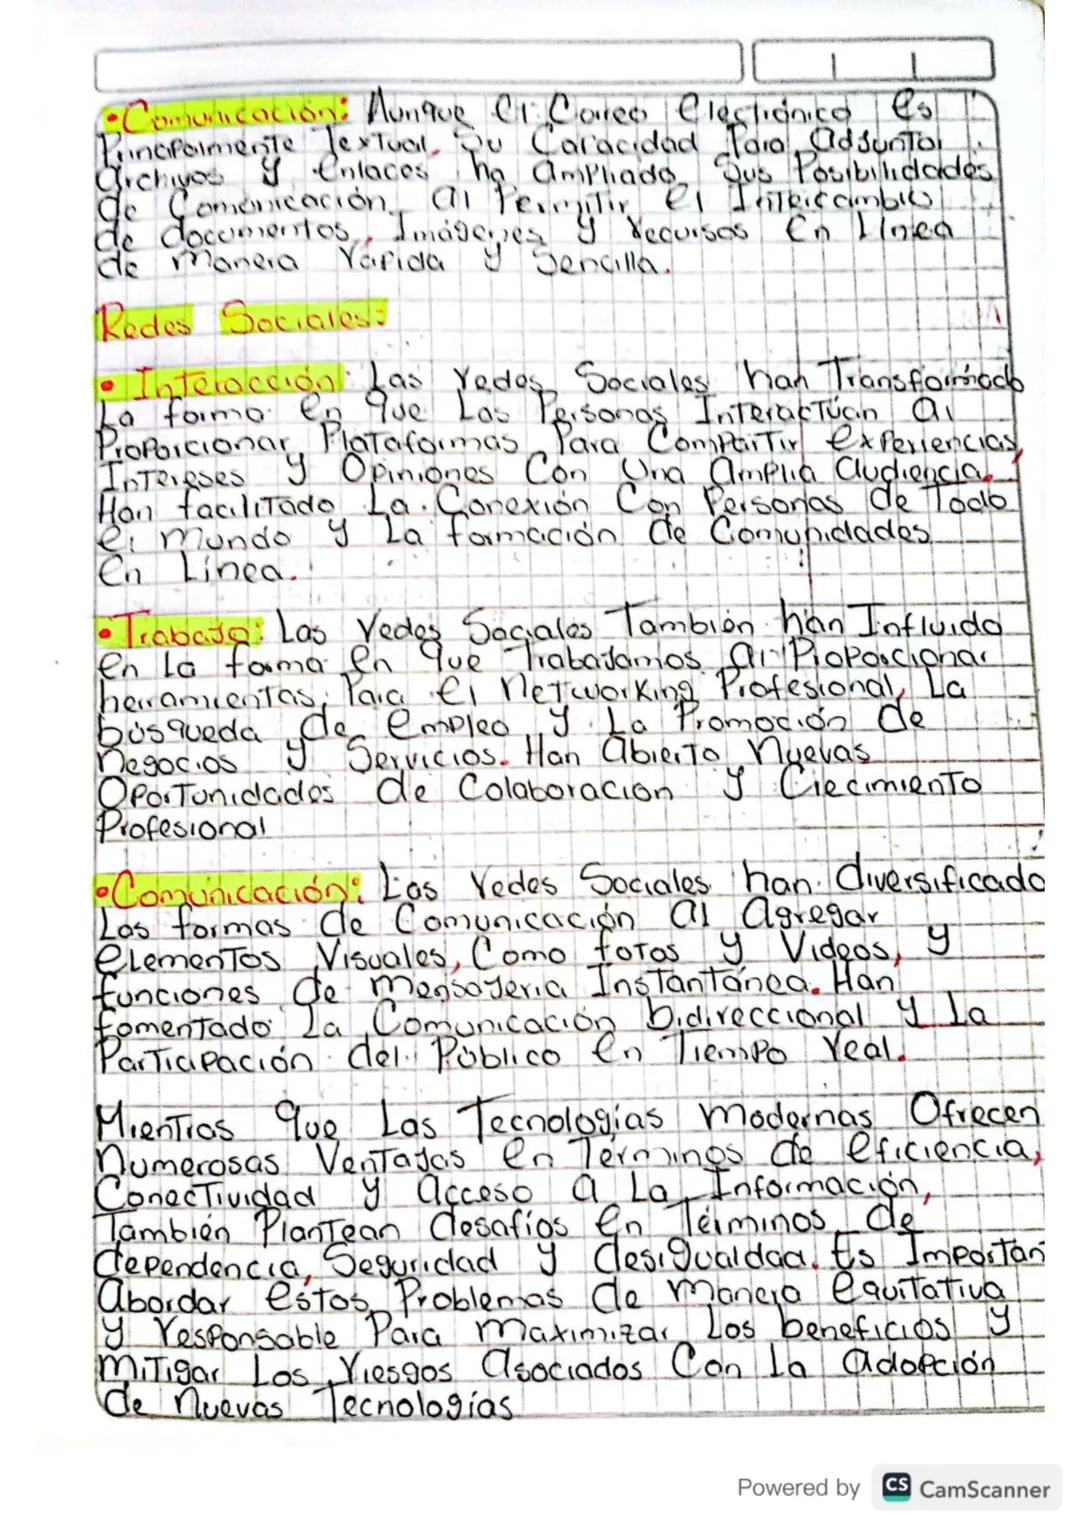 •Comunicación: Aunque el Correo electrónico es
Principalmente Textual, Su Capacidad Para adjuntar
archivos y enlaces ha ampliado Sus Posibilidades
de Comunicación al Permitir el Intercambio
de documentos, Imágenes y recursos en Línea
de manera rápida y Sencilla.
Redes Sociales:
• Interacción: Las redes Sociales han Transformado
La forma en que Las Personas Interactúan al
Proporcionar Plataformas Para Compartir experiencias,
Intereses y Opiniones Con Una amplia audiencia.
Han facilitado La Conexión Con Personas de Todo
el mundo y La formación de Comunidades
en Línea.
•Trabajo: Las redes Sociales También han Influido
en La forma en que Trabajamos al Proporcionar
herramientas Para el networking Profesional, La
búsqueda de empleo y La Promoción de
negocios y Servicios. Han abierto nuevas
Oportunidades de Colaboracion y Crecimiento
Profesional
•Comunicación: Las redes Sociales han diversificado
Las formas de Comunicación al agregar
elementos Visuales, Como fotos y Videos, y
funciones de mensajería Instantánea. Han
fomentado La Comunicación bidireccional y La
Participación del Público en Tiempo real.
Mientras que Las Tecnologías modernas Ofrecen
numerosas Ventajas en Términos de eficiencia,
Conectividad y acceso a La Información,
También Plantean desafíos en Términos de
dependencia, Seguridad y desigualdad. Es Importan
abordar estos Problemas de manera equitativa
y responsable Para maximizar Los beneficios y
mitigar Los riesgos asociados Con la adopción
de nuevas Tecnologías
Powered by CS CamScanner